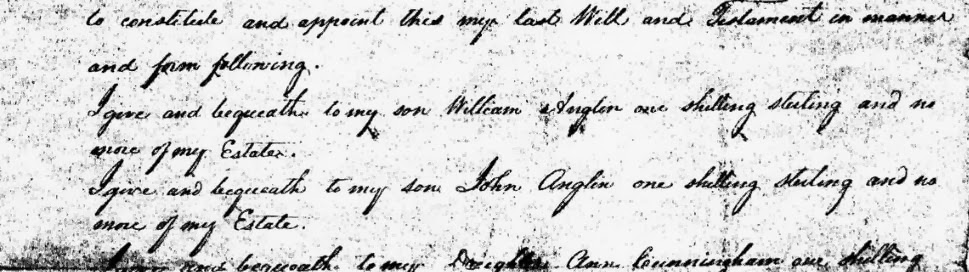 to constitute and appoint this my last Will and Testament in manner
and form following.
I give and bequeath to my son William Anglin one shilling sterling and no
more of my Estate.
I give and bequeath to my son John Anglin one shilling sterling and no
more of my Estate.
I give and bequeath to my Daughter Ann Cunningham one shilling